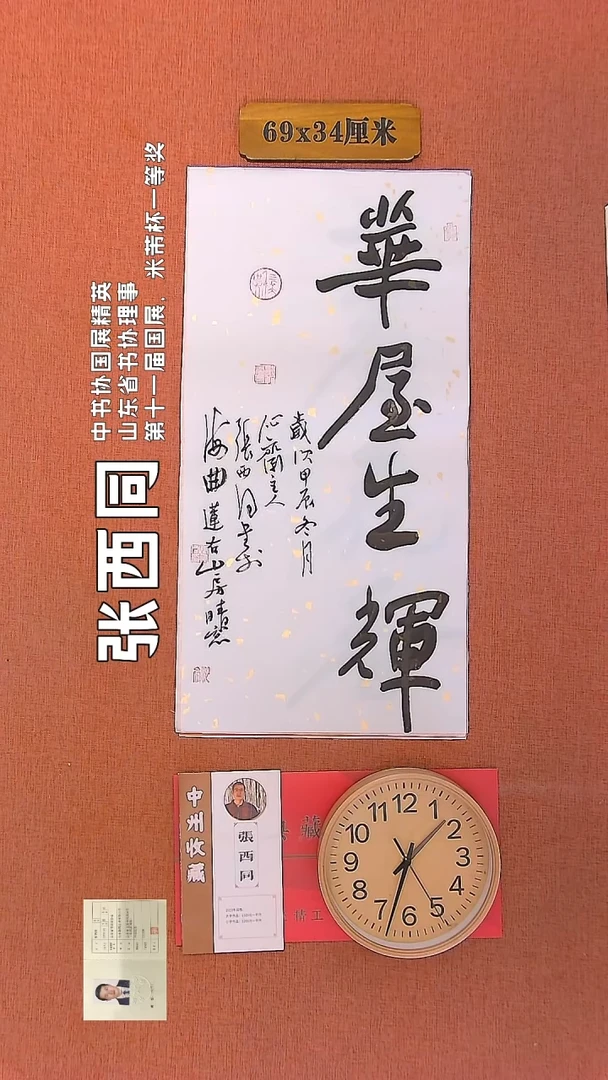 69x34厘米
華屋生輝
歲次甲辰冬月
心齋主人
張西同書於
海曲蓮右山房晴窗
中书协国展精英
山东省书协理事
第十一届国展、米芾杯一等奖
张西同
中生安藏
張西同
藏
精工
12
1
2
3
4
5
6
7
8
9
10
11